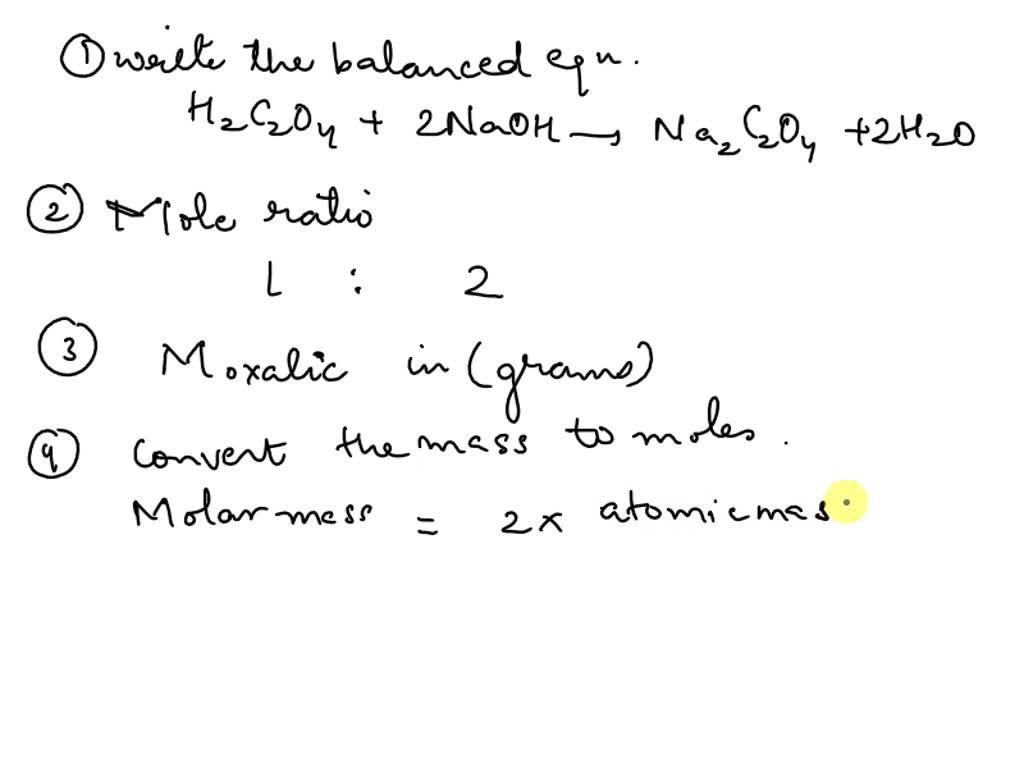 ① write the balanced eqn.
H₂C₂O₄ + 2NaOH → Na₂C₂O₄ + 2H₂O
② Mole ratio
1 : 2
③ Moxalic in (grams)
④ Convert the mass to moles.
Molar mass = 2x atomic mas